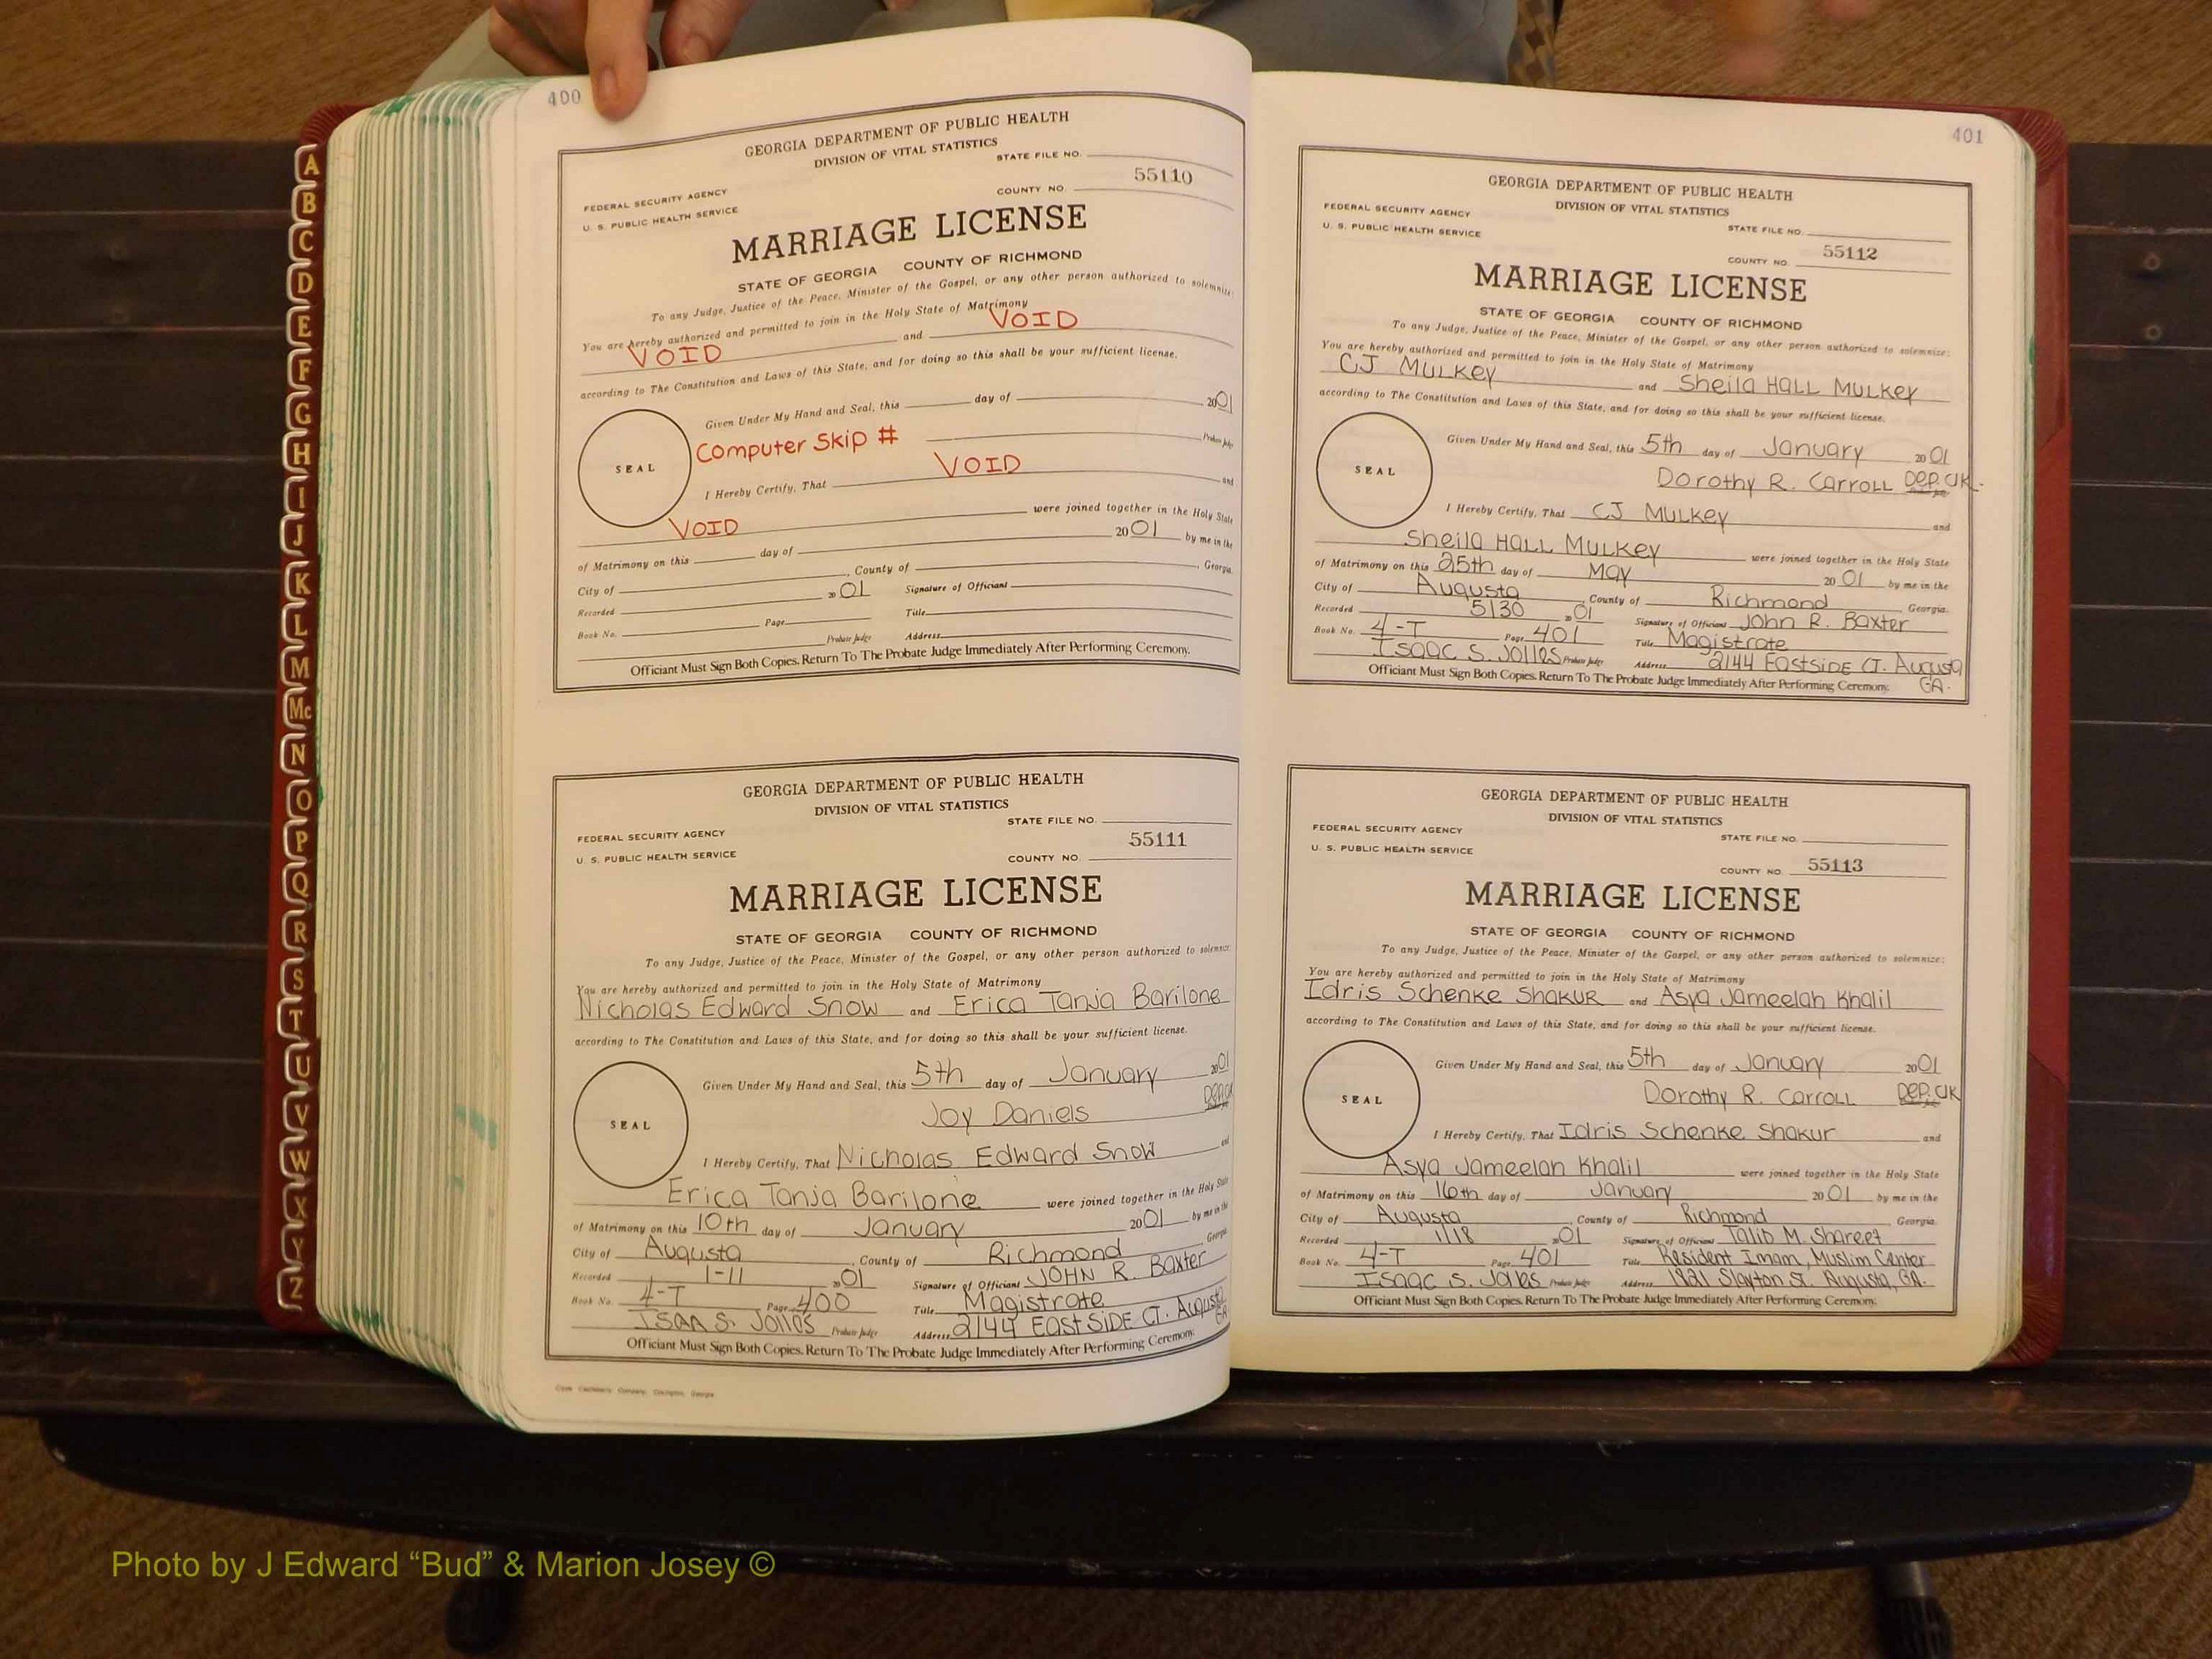 400
GEORGIA DEPARTMENT OF PUBLIC HEALTH
DIVISION OF VITAL STATISTICS
STATE FILE NO.
55110
FEDERAL SECURITY AGENCY
COUNTY NO.
U. S. PUBLIC HEALTH SERVICE
MARRIAGE LICENSE
STATE OF GEORGIA COUNTY OF RICHMOND
To any Judge, Justice of the Peace, Minister of the Gospel, or any other person authorized to solemnize:
You are hereby authorized and permitted to join in the Holy State of Matrimony
VOID and VOID
according to The Constitution and Laws of this State, and for doing so this shall be your sufficient license.
Given Under My Hand and Seal, this day of 2001
SEAL
Computer Skip # Probate Judge
I Hereby Certify, That VOID and
VOID were joined together in the Holy State
of Matrimony on this day of 2001 by me in the
City of , County of , Georgia.
Recorded 2001 Signature of Officiant
Book No. Page Title
Probate Judge Address
Officiant Must Sign Both Copies. Return To The Probate Judge Immediately After Performing Ceremony.
GEORGIA DEPARTMENT OF PUBLIC HEALTH
DIVISION OF VITAL STATISTICS
STATE FILE NO.
FEDERAL SECURITY AGENCY
55111
U. S. PUBLIC HEALTH SERVICE
COUNTY NO.
MARRIAGE LICENSE
STATE OF GEORGIA COUNTY OF RICHMOND
To any Judge, Justice of the Peace, Minister of the Gospel, or any other person authorized to solemnize:
You are hereby authorized and permitted to join in the Holy State of Matrimony
Nicholas Edward Snow and Erica Tanja Barilone
according to The Constitution and Laws of this State, and for doing so this shall be your sufficient license.
Given Under My Hand and Seal, this 5th day of January 2001
SEAL
Joy Daniels Dep. Clk
I Hereby Certify, That Nicholas Edward Snow and
Erica Tanja Barilone were joined together in the Holy State
of Matrimony on this 10th day of January 2001 by me in the
City of Augusta , County of Richmond Georgia
Recorded 1-11 2001 Signature of Officiant JOHN R. Baxter
Book No. 4-T Page 400 Title Magistrate
Isaa S. Jolles Probate Judge Address 2144 EastSIDE CT. Augusta GA
Officiant Must Sign Both Copies. Return To The Probate Judge Immediately After Performing Ceremony.
401
GEORGIA DEPARTMENT OF PUBLIC HEALTH
DIVISION OF VITAL STATISTICS
FEDERAL SECURITY AGENCY
STATE FILE NO.
U. S. PUBLIC HEALTH SERVICE
55112
COUNTY NO.
MARRIAGE LICENSE
STATE OF GEORGIA COUNTY OF RICHMOND
To any Judge, Justice of the Peace, Minister of the Gospel, or any other person authorized to solemnize:
You are hereby authorized and permitted to join in the Holy State of Matrimony
CJ Mulkey and Sheila Hall Mulkey
according to The Constitution and Laws of this State, and for doing so this shall be your sufficient license.
Given Under My Hand and Seal, this 5th day of January 2001
SEAL
Dorothy R. Carroll Dep. Clk.
I Hereby Certify, That CJ Mulkey and
Sheila Hall Mulkey were joined together in the Holy State
of Matrimony on this 25th day of May 2001 by me in the
City of Augusta , County of Richmond Georgia.
Recorded 5/30 2001 Signature of Officiant John R. Baxter
Book No. 4-T Page 401 Title Magistrate
Isaac S. Jolles Probate Judge Address 2144 Eastside CT. Augusta GA.
Officiant Must Sign Both Copies. Return To The Probate Judge Immediately After Performing Ceremony.
GEORGIA DEPARTMENT OF PUBLIC HEALTH
DIVISION OF VITAL STATISTICS
FEDERAL SECURITY AGENCY
STATE FILE NO.
U. S. PUBLIC HEALTH SERVICE
55113
COUNTY NO.
MARRIAGE LICENSE
STATE OF GEORGIA COUNTY OF RICHMOND
To any Judge, Justice of the Peace, Minister of the Gospel, or any other person authorized to solemnize:
You are hereby authorized and permitted to join in the Holy State of Matrimony
Idris Schenke Shakur and Asya Jameelah Khalil
according to The Constitution and Laws of this State, and for doing so this shall be your sufficient license.
Given Under My Hand and Seal, this 5th day of January 2001
SEAL
Dorothy R. Carroll Dep. Clk
I Hereby Certify, That Idris Schenke Shakur and
Asya Jameelah Khalil were joined together in the Holy State
of Matrimony on this 16th day of January 2001 by me in the
City of Augusta , County of Richmond Georgia.
Recorded 1/18 2001 Signature of Officiant Talib M. Shareef
Book No. 4-T Page 401 Title Resident Imam, Muslim Center
Isaac S. Jolles Probate Judge Address 1821 Slayton St. Augusta, GA.
Officiant Must Sign Both Copies. Return To The Probate Judge Immediately After Performing Ceremony.
A
B
C
D
E
F
G
H
I
J
K
L
M
Mc
N
O
P
Q
R
S
T
U
V
W
X
Y
Z
Photo by J Edward “Bud” & Marion Josey ©